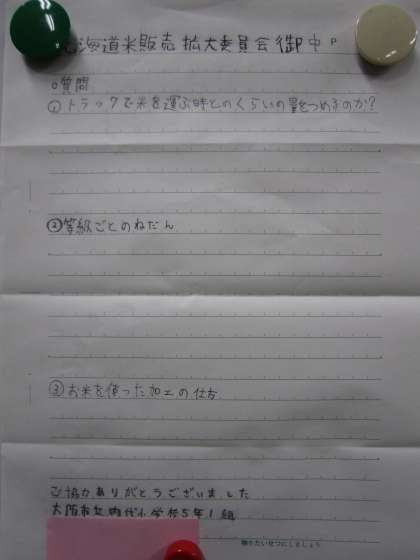 北海道米販売拡大委員会御中 P
○質問
①トラックで米を運ぶ時どのくらいの量をつめるのか?
②等級ごとのねだん
③お米を使った加工の仕方
ご協力ありがとうございました
大阪市立内代小学校5年1組